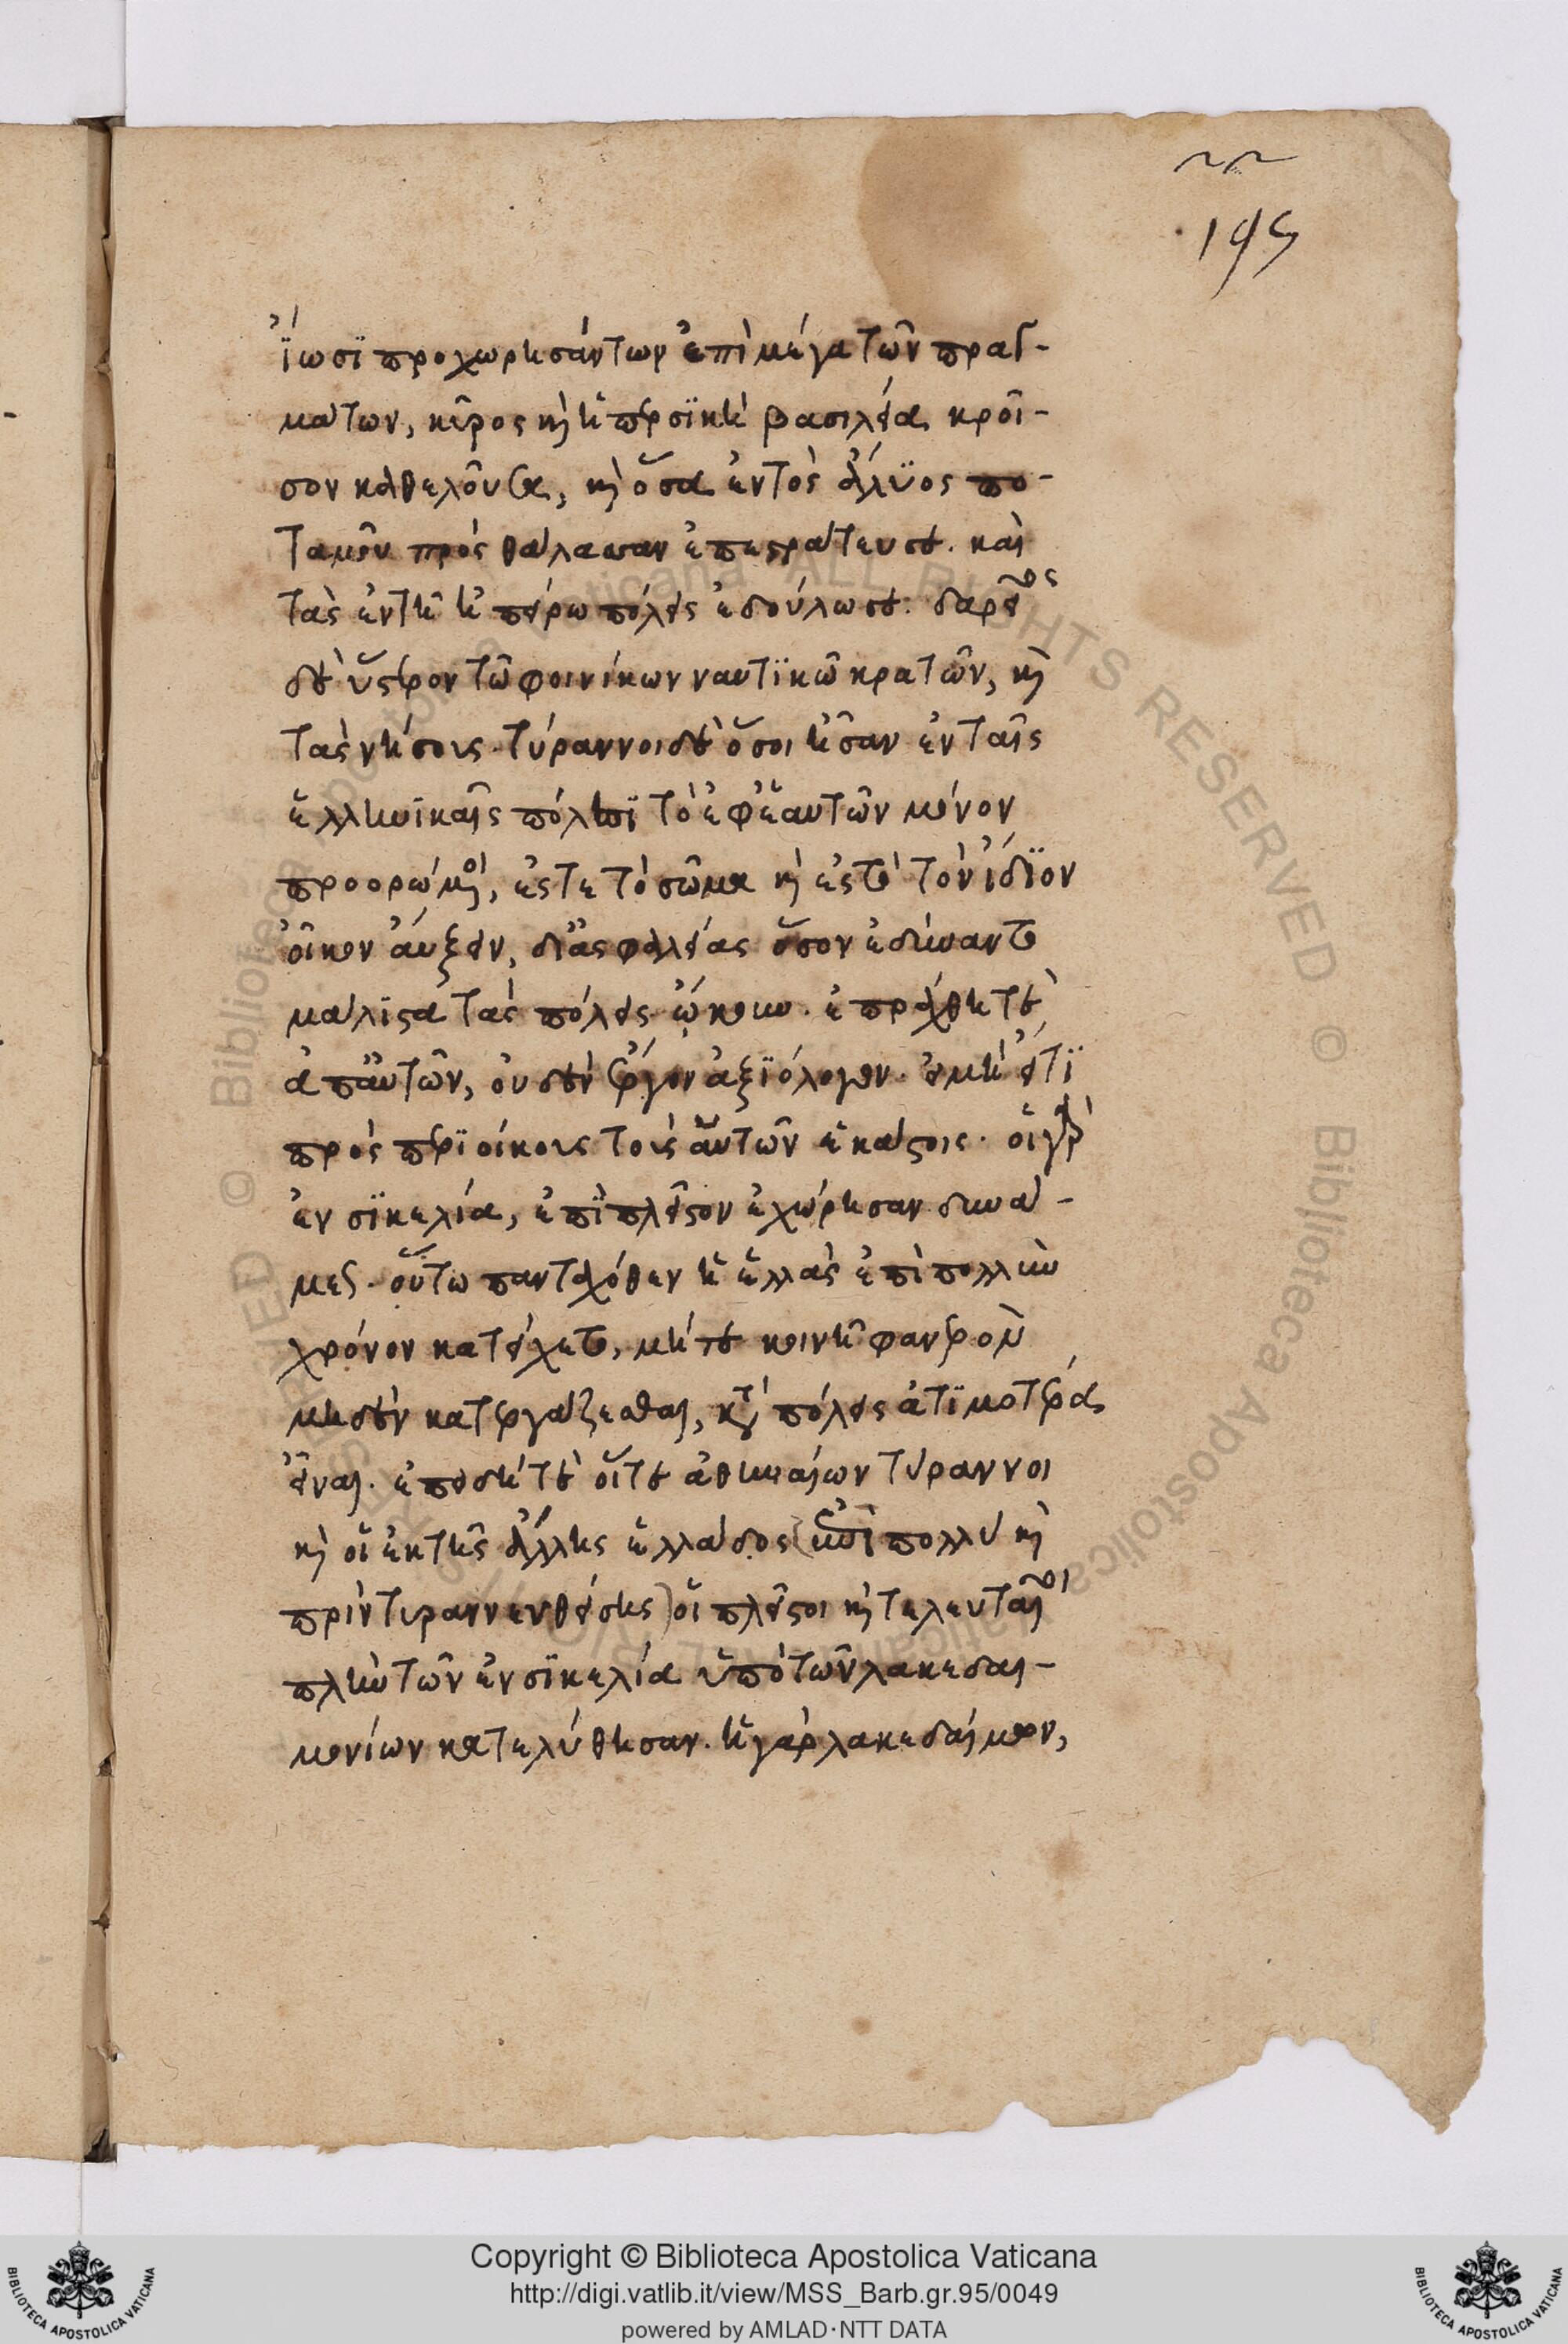 195
ἴωσϊ προχωρησάντων ἐπὶ μέγα τῶν πραγ-
μάτων, κῦρος κὴ ἡ περσϊκὴ βασιλεία κροῖ-
σον καθελοῦσα, κὴ ὅσα ἐντὸς ἅλϋος πο-
ταμοῦ πρὸς θάλασσαν ἐπεστράτευσε. καὶ
τὰς ἐν τῆ ἠπείρω πόλεις ἐδούλωσε. δαρεῖος
δὲ ὕστερον τῶ φοινίκων ναυτϊκῶ κρατῶν, κὴ
τὰς νήσους. τύραννοι δὲ ὅσοι ἦσαν ἐν ταῖς
ἑλληνϊκαῖς πόλεσϊ τὸ ἐφ ἑαυτῶν μόνον
προορώμενοι, ἔς τε τὸ σῶμα κὴ ἐς τὸ τὸν ἴδϊον
οἶκον ἄυξειν, δι ἀσφαλείας ὅσον ἐδύναντο
μάλϊστα τὰς πόλεις ὤκουν. ἐπράχθη τὲ
ἀπ αὐτῶν, οὐδὲν ἔργον ἀξϊόλογον. εἰ μὴ εἴτϊ
πρὸς περϊοίκους τοὺς αὑτῶν ἑκάστοις. οἱ γὰρ
ἐν σϊκελία, ἐπϊπλεῖστον ἐχώρησαν δυνά-
μεως. οὕτω πανταχόθεν ἡ ἑλλὰς ἐπὶ πολλὺν
χρόνον κατείχετο, μήτε κοινῆ φανερὸν
μηδὲν κατεργάζεσθαι, κατὰ πόλεις ἀτϊμοτέρα
εἶναι. ἐπειδή τὲ οἵ τε ἀθηναίων τύραννοι
κὴ οἱ ἐκ τῆς ἄλλης ἑλλάδος (ἡ ἐπὶ πολλὺ κὴ
πρὶν τυραννευθείσης) οἱ πλεῖστοι κὴ τελευταῖοι
πλὴν τῶν ἐν σϊκελία ὑπὸ τῶν λακεδαι-
μονίων κατελύθησαν. ἡ γὰρ λακεδαίμων,
Copyright © Biblioteca Apostolica Vaticana
http://digi.vatlib.it/view/MSS_Barb.gr.95/0049
powered by AMLAD·NTT DATA